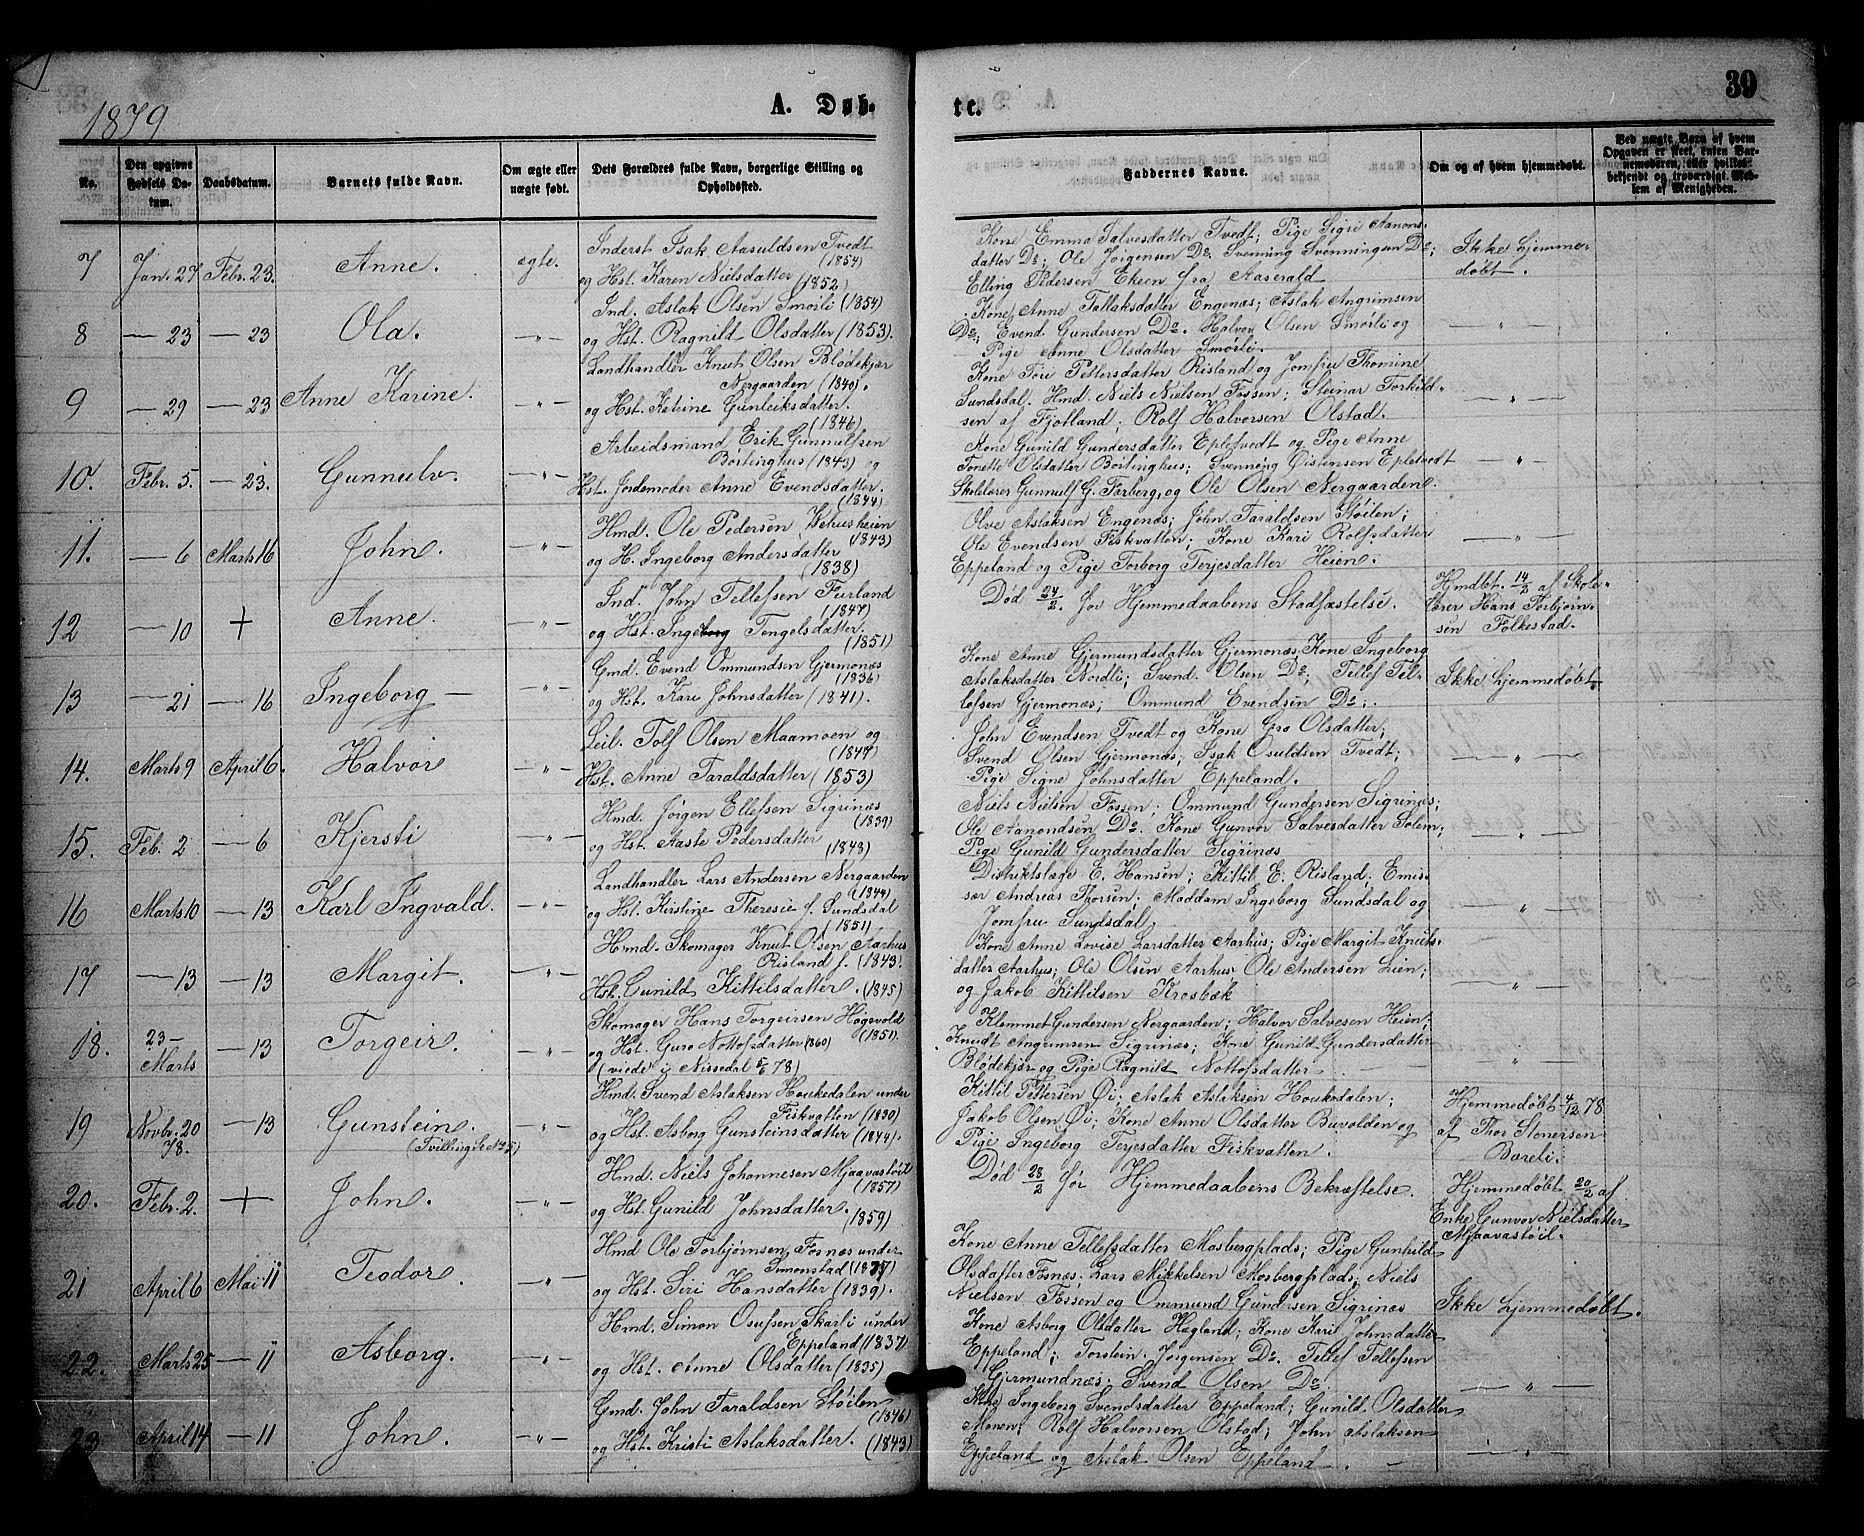 1879
A. Døb-
te.
39
No.
Den opgivne Fødsels Datum.
Daabsdatum.
Barnets fulde Navn.
Om ægte eller uægte født.
Dets Forældres fulde Navn, borgerlige Stilling og Opholdssted.
Faddernes Navne.
Om og af hvem hjemmedøbt.
Ved uægte Børn af hvem Opgaven er skeet, enten Barnemoderen, eller hvilket bekjendt og troværdigt Medlem af Menigheden.
7 Jan. 27 Febr. 23. Anne. ægte.
Inderst Isak Aasuldsen Tvedt
(1854)
og Hst. Karen Nielsdatter
(1852)
Kone Emma Salvesdatter Tvedt; Pige Sigri Aanons-
datter Do; Ole Jörgensen Do; Svenning Svenningsen Do;
Elling Pedersen Ekeen fra Aaserald
Ikke hjemme-
døbt.
8 — 23 — 23 Ola. — " —
Ind. Aslak Olsen Smörli (1854)
og Hst. Ragnild Olsdatter (1853).
Kone Anne Tallaksdatter Engenæs; Aslak Angrimsen
Do; Evend Gundersen Do. Halvor Olsen Smörli og
Pige Anne Olsdatter Smörli.
— " —
9 — 29 — 23 Anne Karine. — " —
Landhandler Knut Olsen Blödekjær
Nergaarden (1840).
og Hst. Katrine Gunleiksdatter.
(1846)
Kone Töri Pettersdatter Risland og Jomfru Thomine
Sundsdal. Hmd. Niels Nielsen Fossen; Steinar Torkild-
sen af Fjotland; Rolf Halvorsen Olstad.
— " —
10. Febr. 5. — 23. Gunnulv. — " —
Arbeidsmand Erik Gunnulfsen
Börtinghus (1843) og
Hst. Jordemoder Anne Evendsdatter.
(1844)
Kone Gunild Gundersdatter Epletvedt og Pige Anne
Tonette Olsdatter Bortinghus; Svennöng Øistensen Epletvedt
Skolelærer Gunnulf G. Farberg, og Ole Olsen Nergaarden.
— " —
11. — 6 Marts 16 John. — " —
Hmd. Ole Pedersen Vehusheien
(1843)
og H. Ingeborg Andersdatter
(1838)
Olve Aslaksen Engenæs; John Taraldsen Stöilen;
Ole Evendsen Fiskvatten; Kone Kari Rolfsdatter
Eppeland og Pige Torborg Terjesdatter Heien.
— " —
12 — 10 + Anne. — " —
Ind. John Tellefsen Furland
(1847)
og Hst. Ingeborg Tengelsdatter.
(1851)
Död 24/2. för Hjemmedaabens Stadfæstelse.
Hjmdbt. 14/2 af Skole-
lærer Hans Torbjörn-
sen Folkestad.
13 — 21 — 16 Ingeborg — — " —
Gmd. Evend Ommundsen Gjermonæs
(1836)
og Hst. Kari Johnsdatter (1841).
Kone Anne Gjermundsdatter Gjermonæs, Kone Ingeborg
Aslaksdatter Nordli; Svend Olsen Do; Tellef Tel-
lefsen Gjermonæs; Ommund Evendsen Do.
Ikke hjemmedøbt
14. Marts 9 April 6. Halvor — " —
Leil. Tolf Olsen Maamoen og
(1847)
Hst. Anne Taraldsdatter (1853)
John Evendsen Tvedt og Kone Gro Olsdatter;
Svend Olsen Gjermonæs; Isak Osuldsen Tvedt;
Pige Signe Johnsdatter Eppeland.
— " —
15. Feb. 2 — 6 Kjersti — " —
Hmd. Jörgen Ellefsen Sigrinæs
(1839)
og Hst. Aaste Pedersdatter
(1843)
Niels Nielsen Fossen; Ommund Gundersen Sigrinæs;
Ole Aanondsen Do. Kone Gunvor Salvesdatter Solem;
Pige Gunild Gundersdatter Sigrinæs
— " —
16 Marts 10 — 13 Karl Ingvald. — " —
Landhandler Lars Andersen Nergaarden
(1844)
og Hst. Kirstine Theresie f. Sundsdal
(1851)
Distriktslæge E. Hansen; Kittil E. Risland; Emis-
sær Andreas Thorsen; Maddam Ingeborg Sundsdal og
Jomfru Sundsdal
— " —
17 — 13 — 13 Margit. — " —
Hmd. Skomager Knut Olsen Aarhus
Risland f. (1843.
Hst. Gunild Kittilsdatter. (1845)
Kone Anne Lovise Larsdatter Aarhus; Pige Margit Knuts-
datter Aarhus; Ole Olsen Aarhus Ole Andersen Lien;
og Jakob Kittilsen Krosbæk
— " —
18. 23— Marts — 13 Torgeir. — " —
Skomager Hans Torgeirsen Högevold
(1851).
og Hst. Guro Nottofsdatter (1860)
(viede i Nissedal 5/5 78)
Klemmet Gundersen Nergaarden; Halvor Salvesen Heien;
Knudt Angrimsen Sigrinæs; Kone Gunild Gundersdatter
Blödekjær og Pige Ragnild Nottofsdatter
"
19 Novbr. 20 78. — 13 Gunstein. — " —
(Tvilling se No 5)
Hmd. Svend Aslaksen Houkedalen under
Fiskvatten (1830)
og Hst. Asborg Gunsteinsdatter (1844).
Kittil Pettersen Øi; Aslak Aslaksen Houkedalen;
Jakob Olsen Øi; Kone Anne Olsdatter Buvolden og
Pige Ingeborg Terjesdatter Fiskvatten.
Hjemmedöbt 4/12 78
af Thor Stenersen
Bareli.
20. Febr. 2. + John. — " —
Hmd. Niels Johannesen Mjaavastöil
(1857)
og Hst. Gunild Johnsdatter.
(1859)
Död 28/2 för Hjemmedaabens Bekræftelse.
Hjemmedöbt 20/2 af
Enke Gunvor Nielsdatter
Mjaavastöil.
21 April 6 Mai 11 Teodor. — " —
Hmd Ole Torbjörnsen Fosnæs under
Simonstad (1837)
og Hst. Siri Hansdatter (1839).
Kone Anne Tellefsdatter Mosbergplads; Pige Gunhild
Olsdatter Fosnæs. Lars Mikkelsen Mosbergplads, Niels
Nielsen Fossen og Ommund Gundersen Sigrinæs
Ikke hjemmedöbt.
22. Marts 25 — 11 Asborg. — " —
Hmd. Simon Osufsen Skarli under
Eppeland (1837)
og Hst. Anne Olsdatter (1835)
Kone Asborg Olsdatter Hægland; Kone Kari Johnsdatter
Eppeland; Torstein Jörgensen Do. Tellef Tellefsen
Gjermundnæs; Svend Olsen Do
— " —
23 April 14 — 11 John. — " —
Gmd. John Taraldsen Stöilen
(1846)
og Hst. Kristi Aslaksdatter. (1843)
Kone Ingeborg Svendsdatter Eppeland; Gunild Olsdatter
Monen; Rolf Halvorsen Olstad; John Aslaksen
Eppeland og Aslak Olsen Eppeland.
"